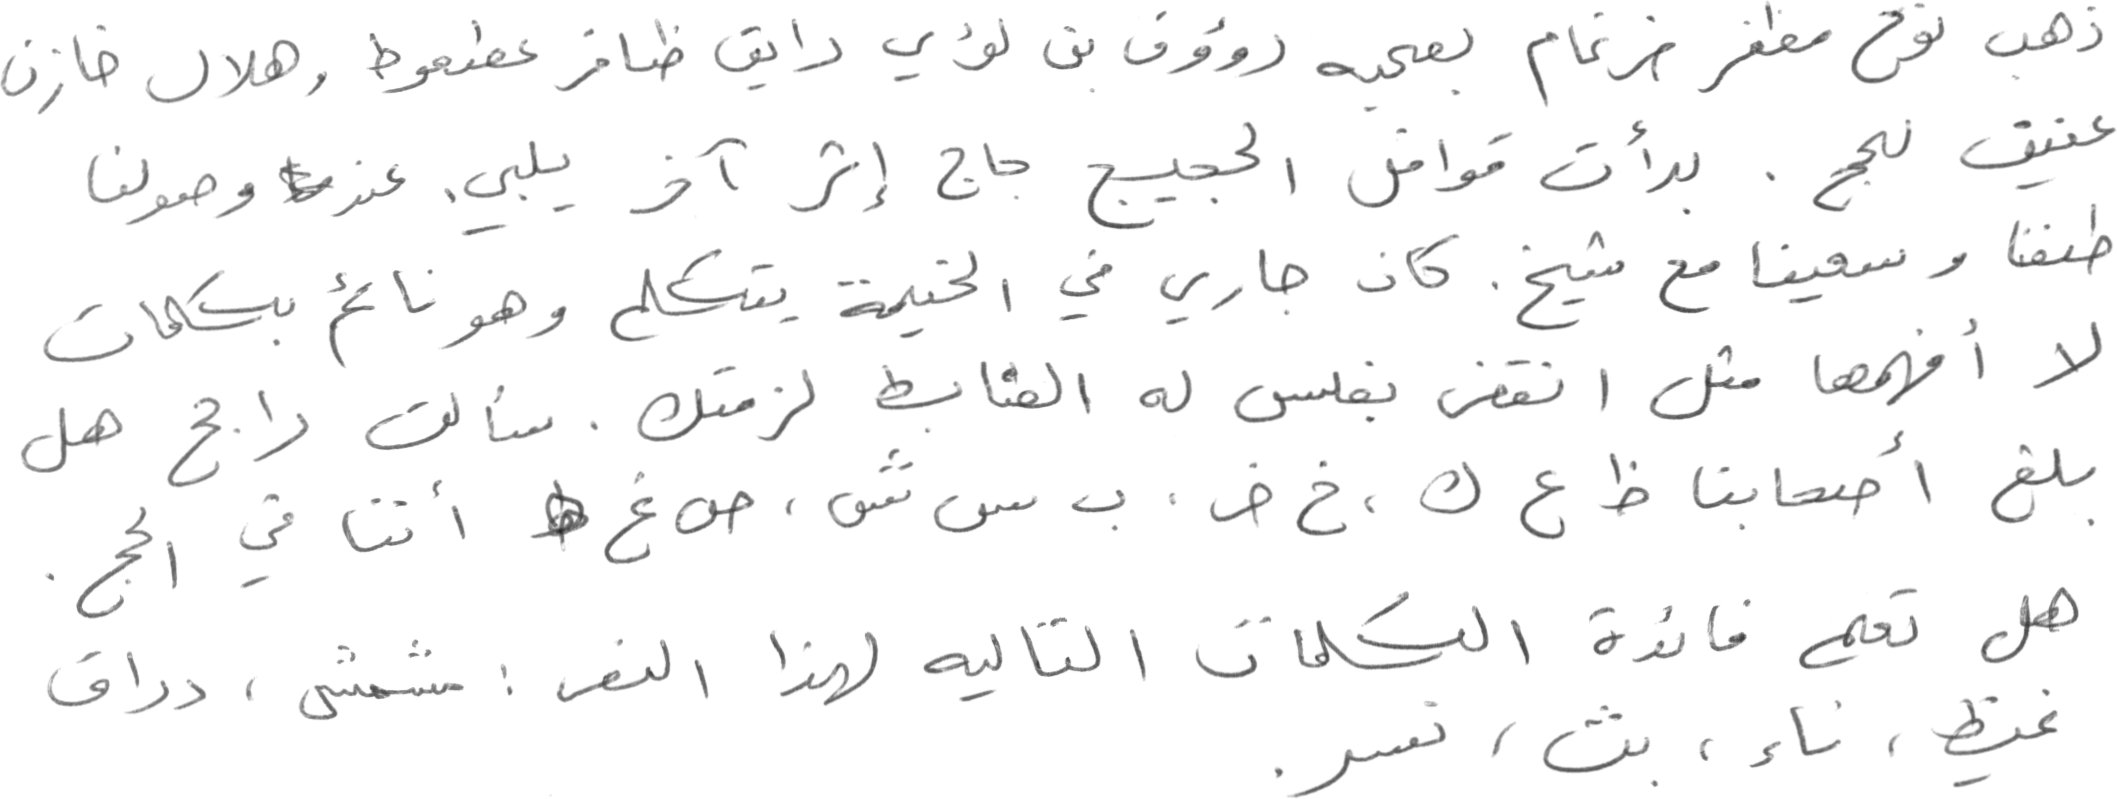 ذهب نوح مظفر ضرغام بصحبه رووؤف بن لؤي رايق ظافر عطعوط وهلال خازن
عتيق للحج . بدأت قوافل الحجيج حاج إثر آخر يلبي. عند وصولنا
طفنا وسعينا مع شيخ. كان جاري في الخيمة يتكلم وهو نائم بكلمات
لا أفهمها مثل انقض بفلس له الضابط لزمتك . سألت راجح هل
بلغ أصحابنا ظ ع ك ، خ ض ، ب س ش ، ص غ ط أننا في الحج .
هل تعلم فائدة الكلمات التاليه لهذا النص : مشمش ، دراق
غيظ ، ناء ، بث ، نسر .